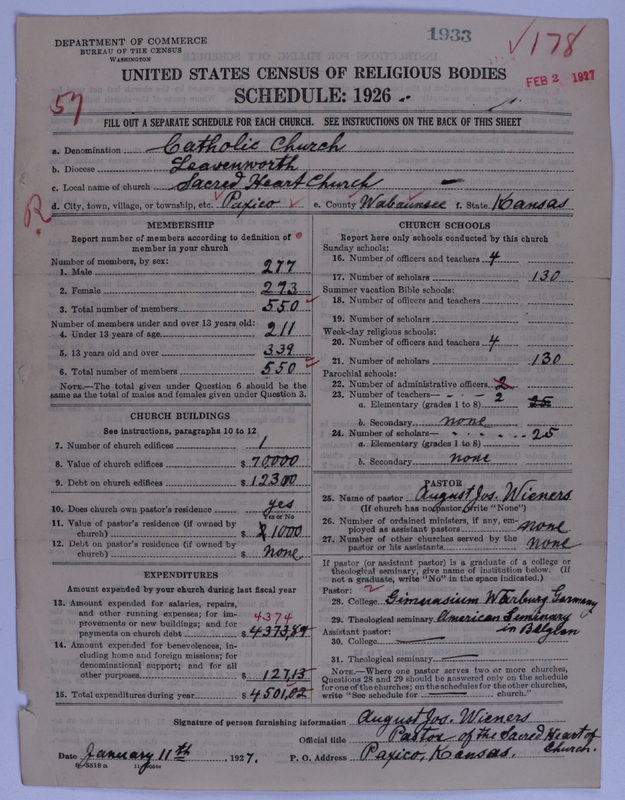 DEPARTMENT OF COMMERCE
BUREAU OF THE CENSUS
WASHINGTON
1933
178
FEB 2 1927
57
UNITED STATES CENSUS OF RELIGIOUS BODIES
SCHEDULE: 1926
FILL OUT A SEPARATE SCHEDULE FOR EACH CHURCH. SEE INSTRUCTIONS ON THE BACK OF THIS SHEET
a. Denomination Catholic Church
b. Diocese Leavenworth
c. Local name of church Sacred Heart Church
R
d. City, town, village, or township, etc. Paxico e. County Wabaunsee f. State Kansas
MEMBERSHIP
Report number of members according to definition of
member in your church
Number of members, by sex:
1. Male 277
2. Female 273
3. Total number of members 550
Number of members under and over 13 years old:
4. Under 13 years of age 211
5. 13 years old and over 339
6. Total number of members 550
NOTE.—The total given under Question 6 should be the
same as the total of males and females given under Question 3.
CHURCH BUILDINGS
See instructions, paragraphs 10 to 12
7. Number of church edifices 1
8. Value of church edifices $70000
9. Debt on church edifices $12300
10. Does church own pastor's residence yes
Yes or No
11. Value of pastor's residence (if owned by
church) $ 1000
12. Debt on pastor's residence (if owned by
church) $ none
EXPENDITURES
Amount expended by your church during last fiscal year
13. Amount expended for salaries, repairs,
and other running expenses; for im-
provements or new buildings; and for
payments on church debt 4374 $4373,89
14. Amount expended for benevolences, in-
cluding home and foreign missions; for
denominational support; and for all
other purposes $127,13
15. Total expenditures during year $4501,02
CHURCH SCHOOLS
Report here only schools conducted by this church
Sunday schools:
16. Number of officers and teachers 4
17. Number of scholars 130
Summer vacation Bible schools:
18. Number of officers and teachers
19. Number of scholars
Week-day religious schools:
20. Number of officers and teachers 4
21. Number of scholars 130
Parochial schools:
22. Number of administrative officers 2
23. Number of teachers—
a. Elementary (grades 1 to 8) 2 25
b. Secondary none
24. Number of scholars— 25
a. Elementary (grades 1 to 8)
b. Secondary none
PASTOR
25. Name of pastor August Jos. Wieners
(If church has no pastor, write "None")
26. Number of ordained ministers, if any, em-
ployed as assistant pastors none
27. Number of other churches served by the
pastor or his assistants none
If pastor (or assistant pastor) is a graduate of a college or
theological seminary, give name of institution below. (If
not a graduate, write "No" in the space indicated.)
Pastor:
28. College Gimnasium Warburg Germany
29. Theological seminary American Seminary
Assistant pastor: in Belgien
30. College
31. Theological seminary
NOTE.—Where one pastor serves two or more churches,
Questions 28 and 29 should be answered only on the schedule
for one of the churches; on the schedules for the other churches,
write "See schedule for church."
Signature of person furnishing information August Jos. Wieners
Official title Pastor of the Sacred Heart of
Church.
Date January 11th, 1927. P. O. Address Paxico, Kansas.